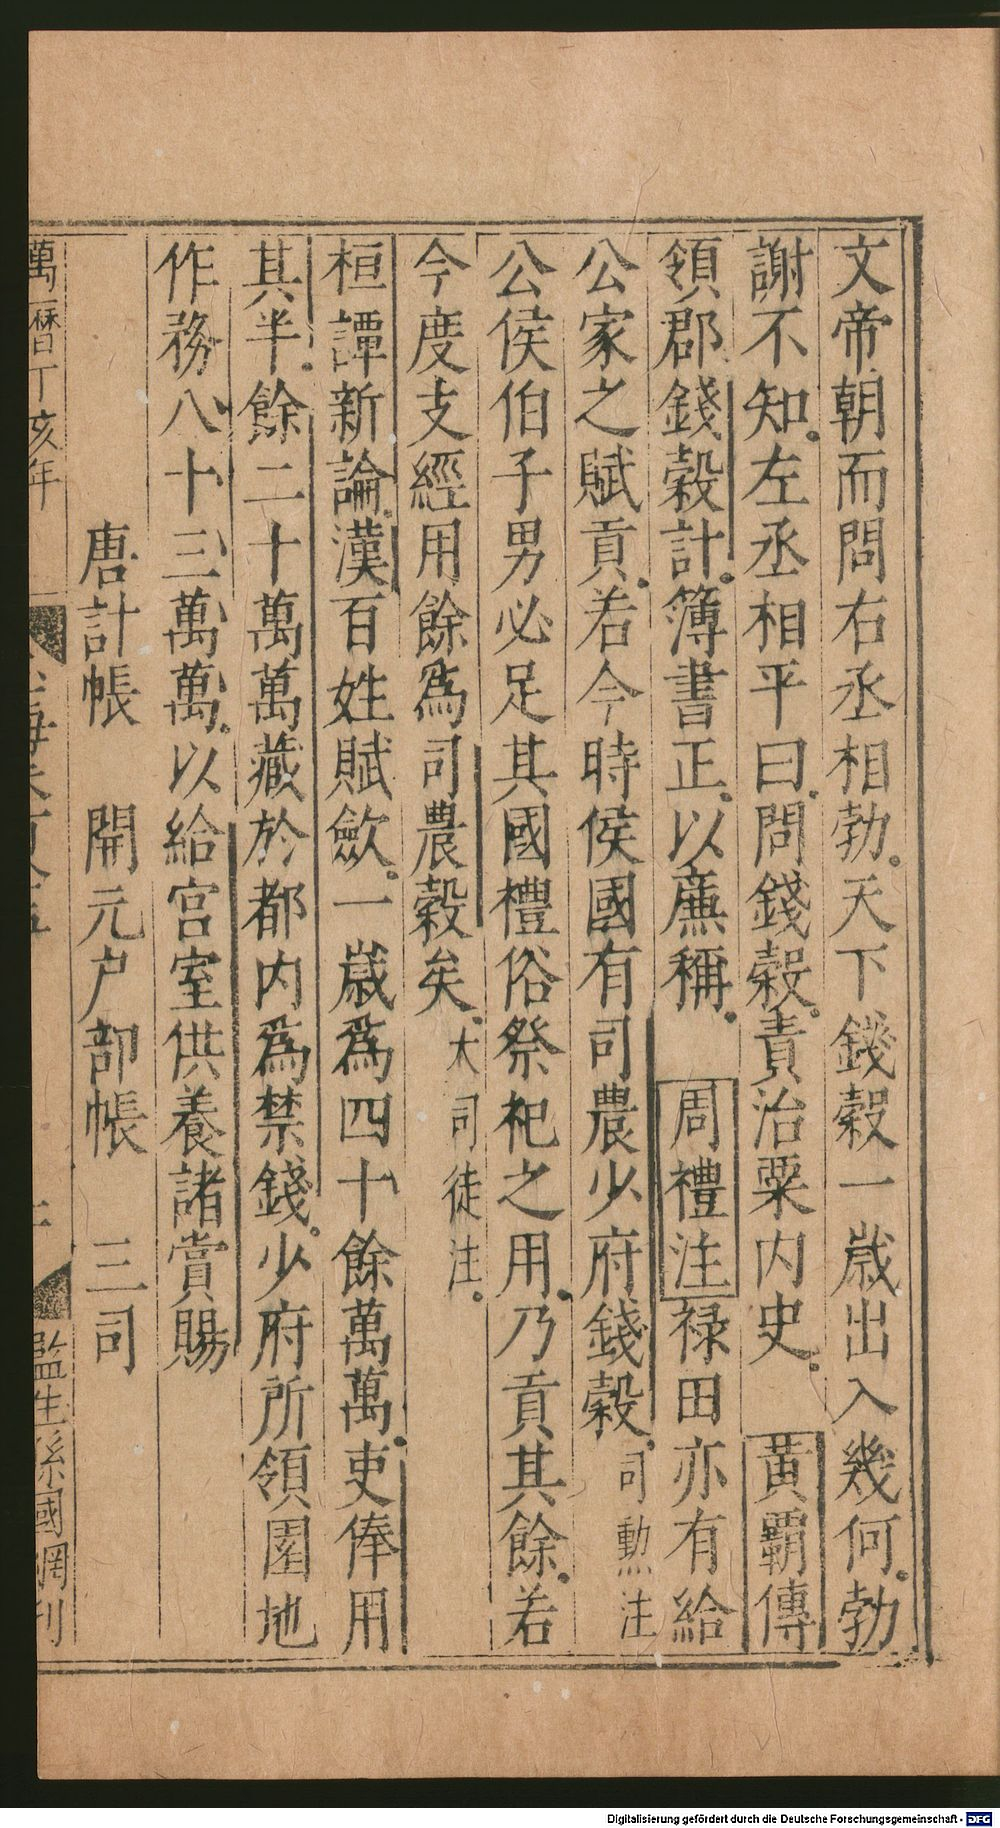 文帝朝而問右丞相勃。天下錢穀一歲出入幾何。勃
謝不知。左丞相平曰。問錢穀。責治粟內史。　黃霸傳
領郡錢穀計。簿書正。以廉稱。　周禮注祿田亦有給
公家之賦貢。若今時侯國有司農少府錢穀。司勳注
公侯伯子男必足其國禮俗祭祀之用。乃貢其餘。若
今度支經用餘爲司農穀矣。大司徒注。
桓譚新論。漢百姓賦斂。一歲爲四十餘萬萬。吏俸用
其半。餘二十萬萬藏於都內爲禁錢。少府所領園地
作務八十三萬萬。以給宮室供養諸賞賜
唐計帳　開元户部帳　三司
萬曆丁亥年
監生孫國綱刊
Digitalisierung gefördert durch die Deutsche Forschungsgemeinschaft - DFG